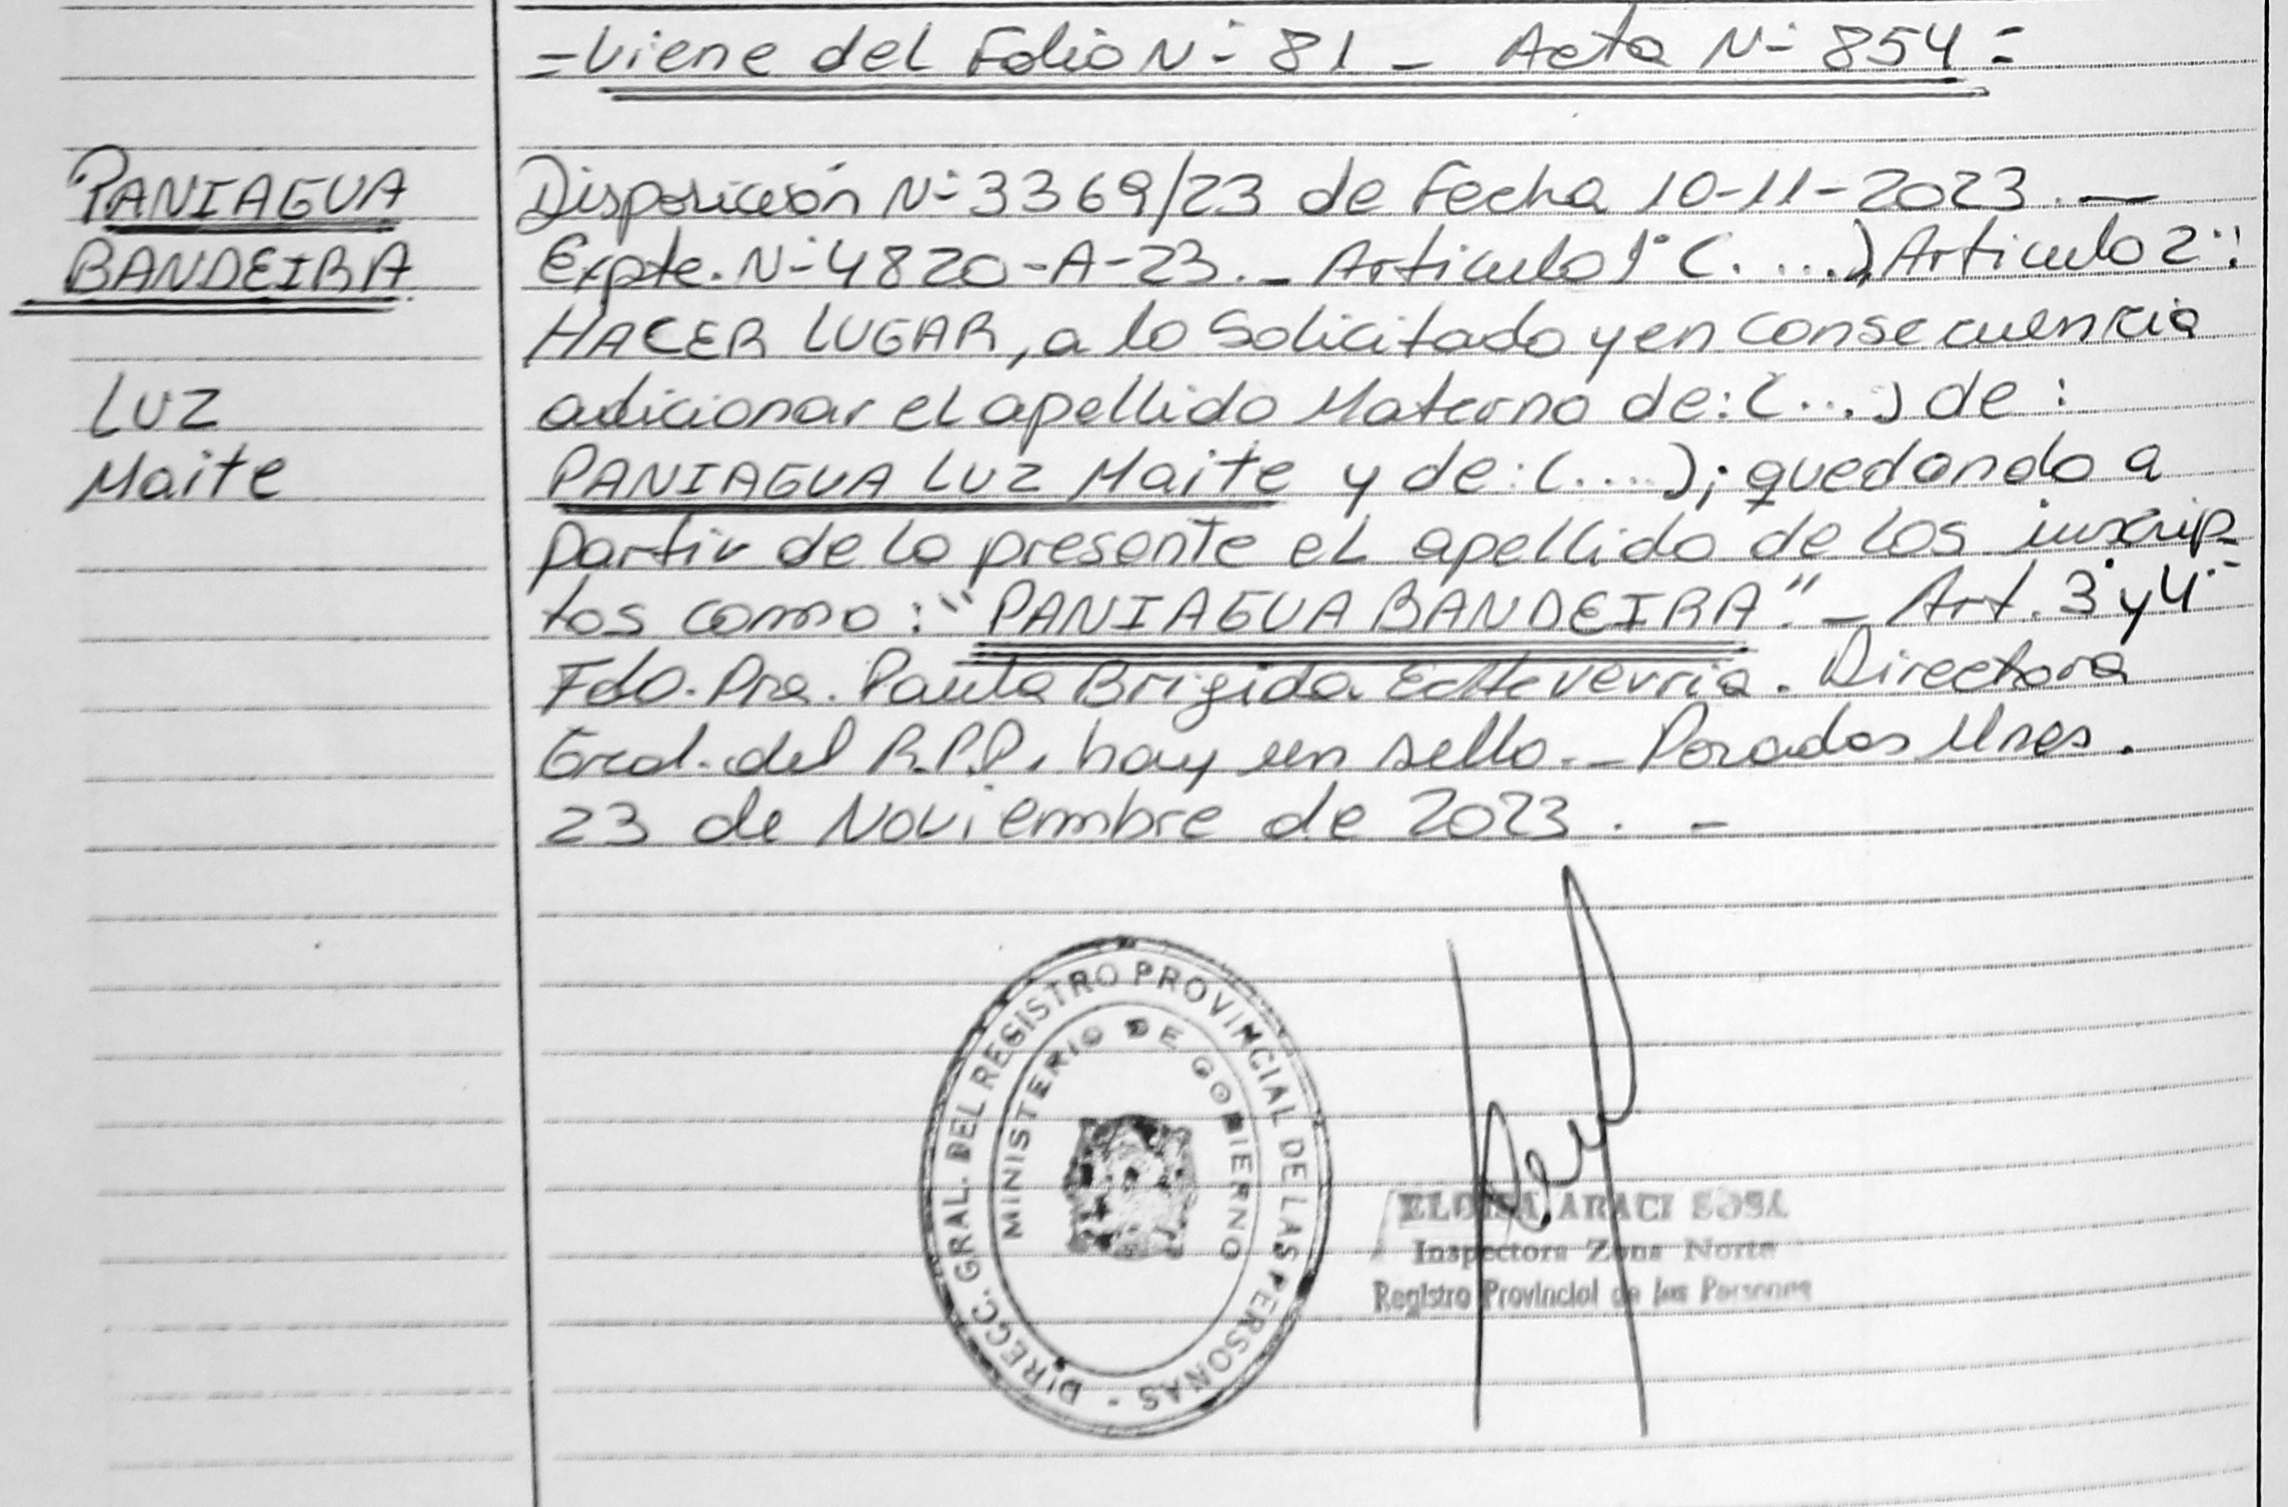 = Viene del Folio N- 81 - Acta N- 854 =
PANIAGUA
BANDEIRA
LUZ
Maite
Disposición N- 3369/23 de Fecha 10-11-2023. —
Expte. N- 4820-A-23. - Articulo 1° (. ....) Articulo 2°:
HACER LUGAR, a lo Solicitado y en consecuencia
adicionar el apellido Materno de: (...) de :
PANIAGUA LUZ Maite y de: (....); quedando a
Partir de la presente el apellido de los inscrip-
tos como : "PANIAGUA BANDEIRA". - Art. 3° y 4°.-
Fdo. Dra. Paula Brigida Echeverria. Directora
Gral. del R.P.P. hay un sello. - Posadas Mnes.
23 de Noviembre de 2023 . -
DIRECC. GRAL. DEL REGISTRO PROVINCIAL DE LAS PERSONAS -
MINISTERIO DE GOBIERNO
ELOISA ARACI SOSA
Inspectora Zona Norte
Registro Provincial de las Personas